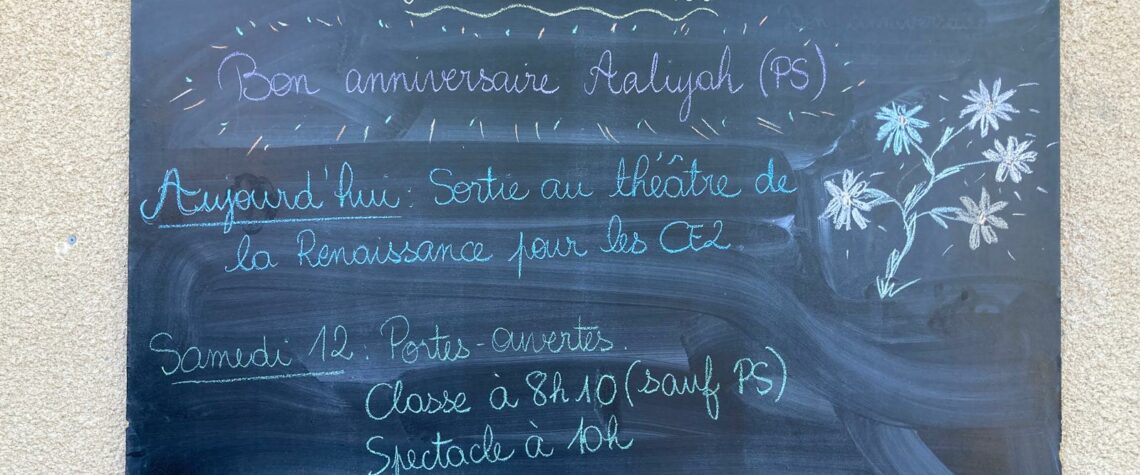 Bon anniversaire Aaliyah (PS)
Aujourd'hui : Sortie au théâtre de
la Renaissance pour les CE2.
Samedi 12 : Portes-ouvertes.
Classe à 8h10 (sauf PS)
Spectacle à 10h